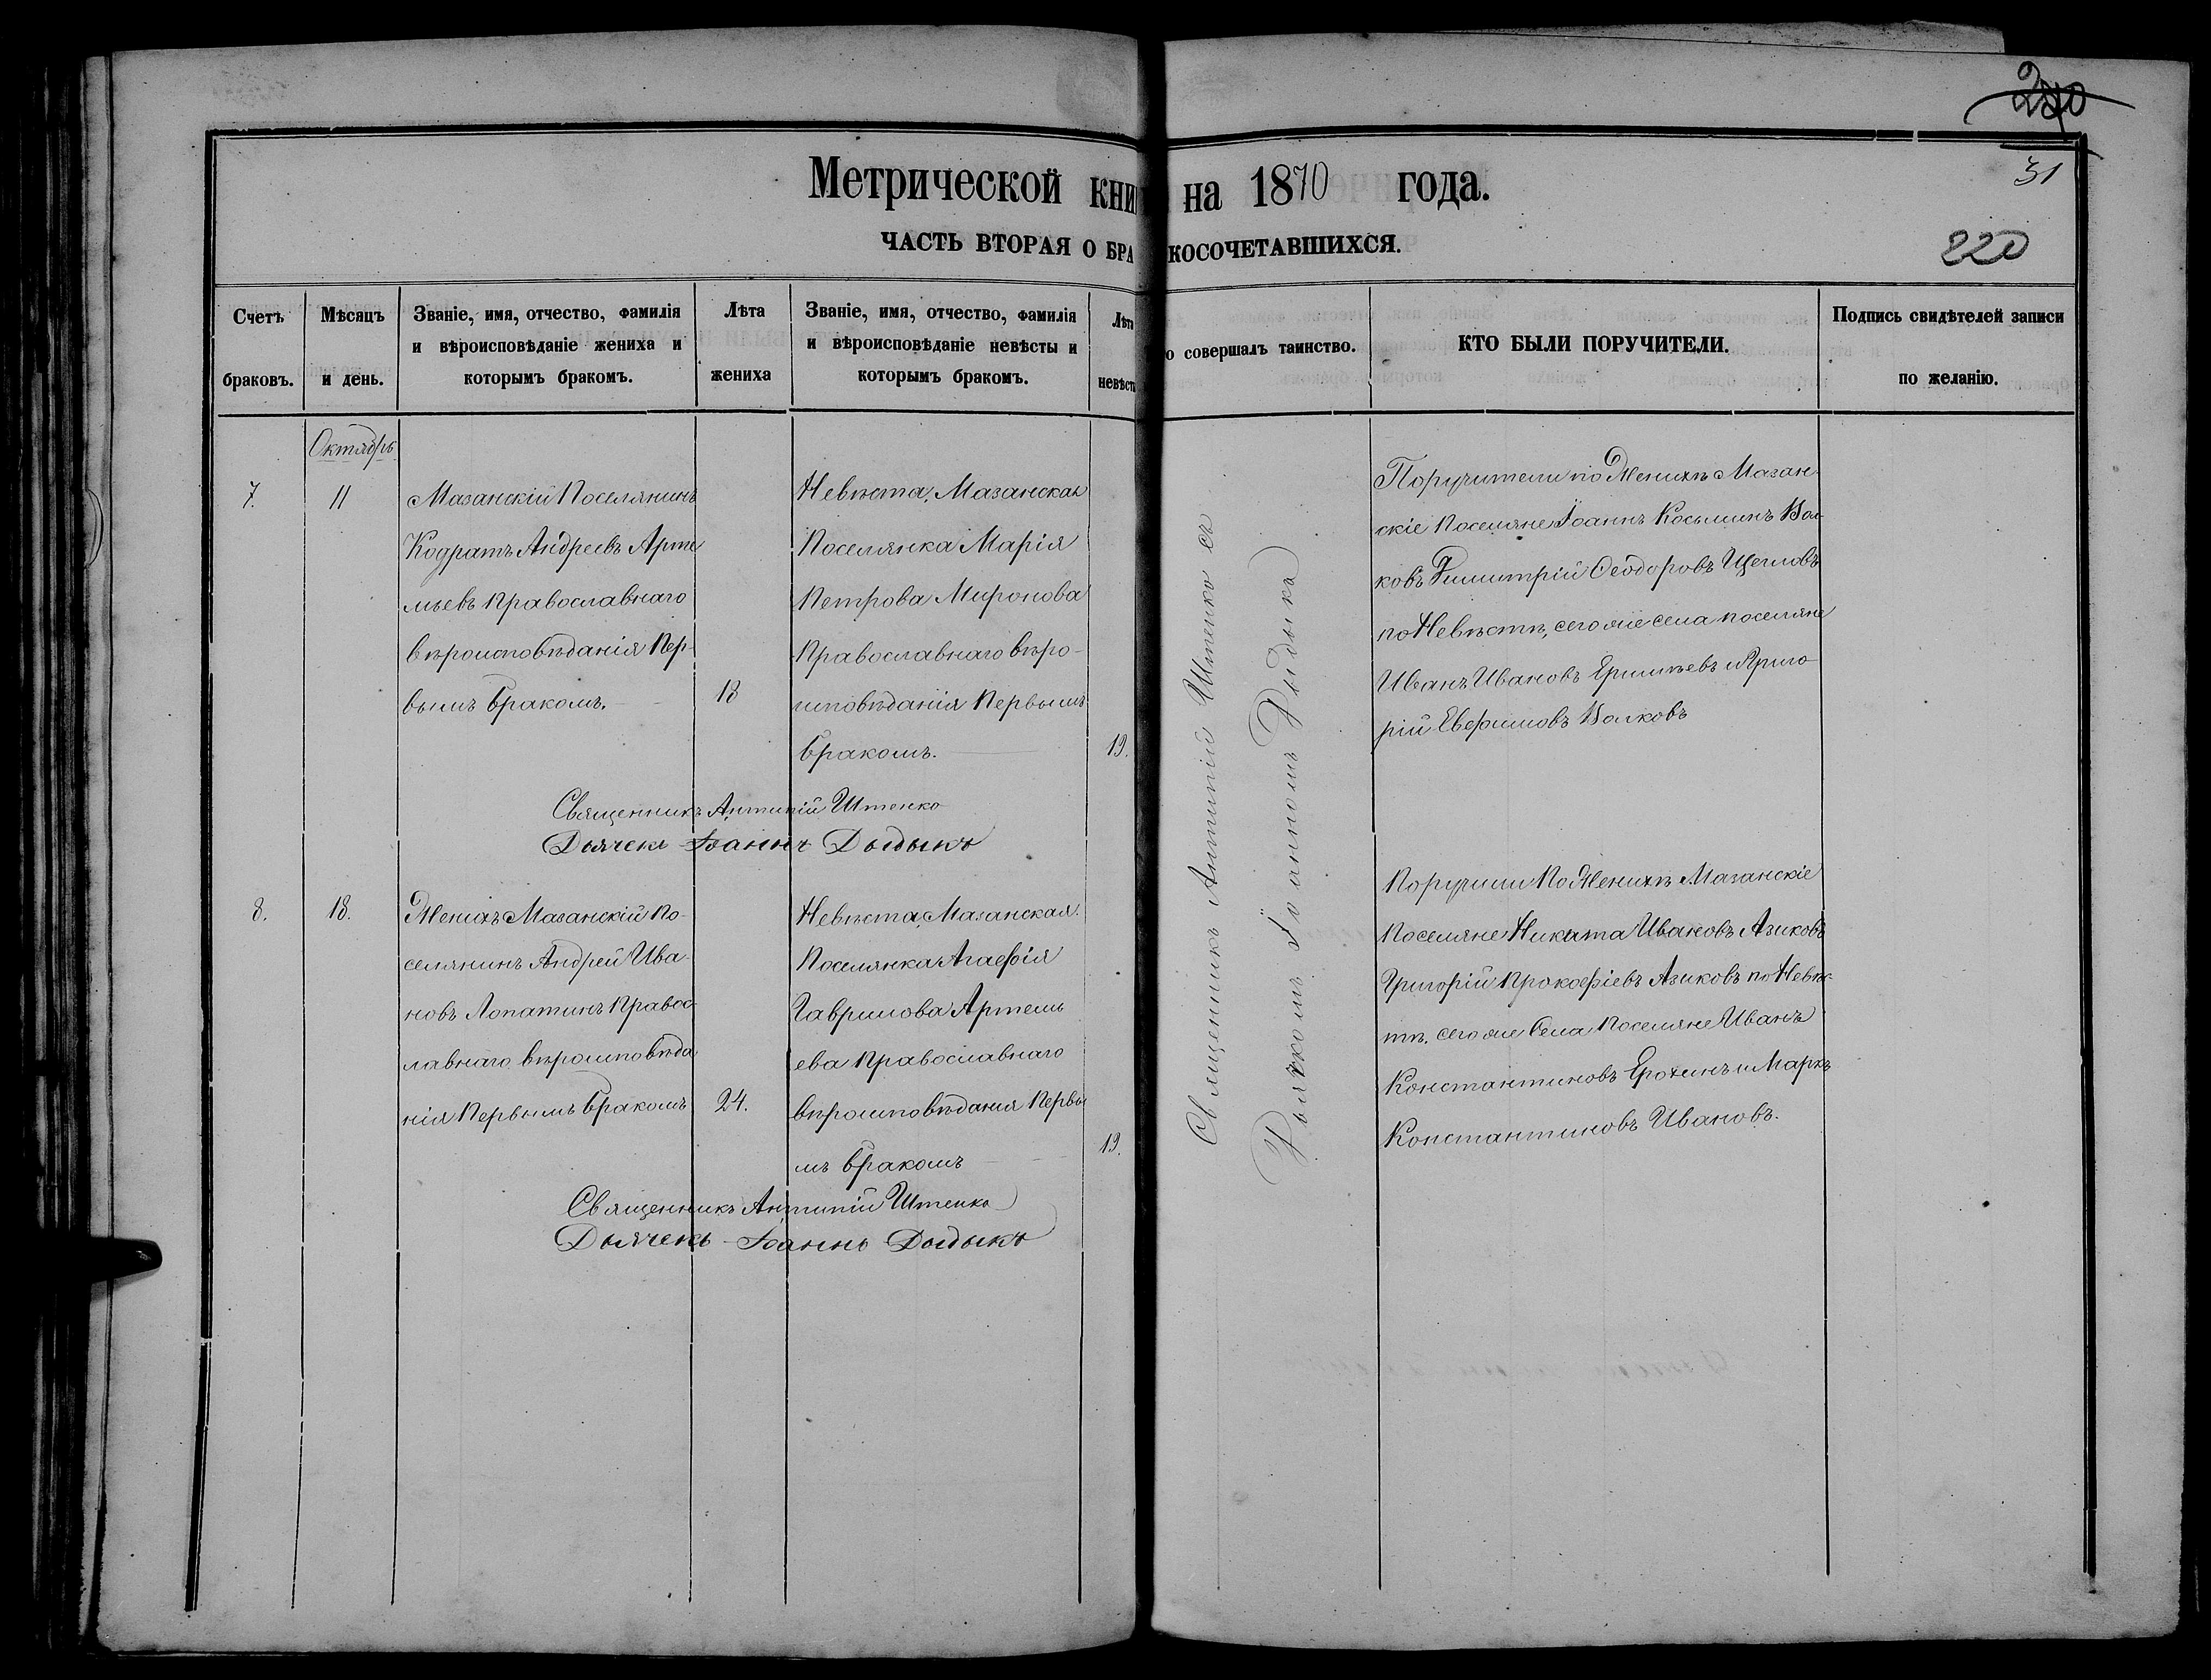 240
31
220
Метрической кни на 1870 года.
ЧАСТЬ ВТОРАЯ О БРА КОСОЧЕТАВШИХСЯ.
Счетъ браковъ.
Мѣсяцъ и день.
Званіе, имя, отчество, фамилія
и вѣроисповѣданіе жениха и
которымъ бракомъ.
Лѣта
жениха
Званіе, имя, отчество, фамилія
и вѣроисповѣданіе невѣсты и
которымъ бракомъ.
Лѣта
невѣст
о совершалъ таинство.
КТО БЫЛИ ПОРУЧИТЕЛИ.
Подпись свидѣтелей записи
по желанію.
Октябрь
7.
11
Мазанскій Поселянинъ
Кодратъ Андреевъ Арте
мьевъ Православнаго
вѣроисповѣданія Пер-
вымъ бракомъ.
18
Невѣста, Мазанская
Поселянка Марія
Петрова Миронова
Православнаго вѣро-
исповѣданія Первымъ
бракомъ.
19.
Священникъ Антипій Штенко
Дьячекъ Іоаннъ Дыдыка
Священникъ Антипій Штенко съ
Дьячкомъ Іоанномъ Дыдыка
Поручители по Женихѣ Мазан-
скіе Поселяне Іоаннъ Косьминъ Вол-
ковъ Димитрій Ѳеодоровъ Щегловъ
по Невѣстѣ, сего же села поселяне
Иванъ Ивановъ и Григо
рій Евфимовъ Волковъ
8.
18.
Женихъ Мазанскій По-
селянинъ Андрей Ива-
новъ Лопатинъ Правос-
лавнаго вѣроисповѣда
нія Первымъ бракомъ
24.
Невѣста, Мазанская
Поселянка Агафія
Гаврилова Артемь
ева Православнаго
вѣроисповѣданія Первы
мъ бракомъ
19.
Священникъ Антипій Штенко
Дьячекъ Іоаннъ Дыдыка
Поручили По Женихѣ Мазанскіе
Поселяне Никита Ивановъ Азиковъ
Григорій Прокофіевъ Азиковъ по Невѣс-
тѣ, сего же Села Поселяне Иванъ
Константиновъ Ерохинъ и Маркъ
Константиновъ Ивановъ.